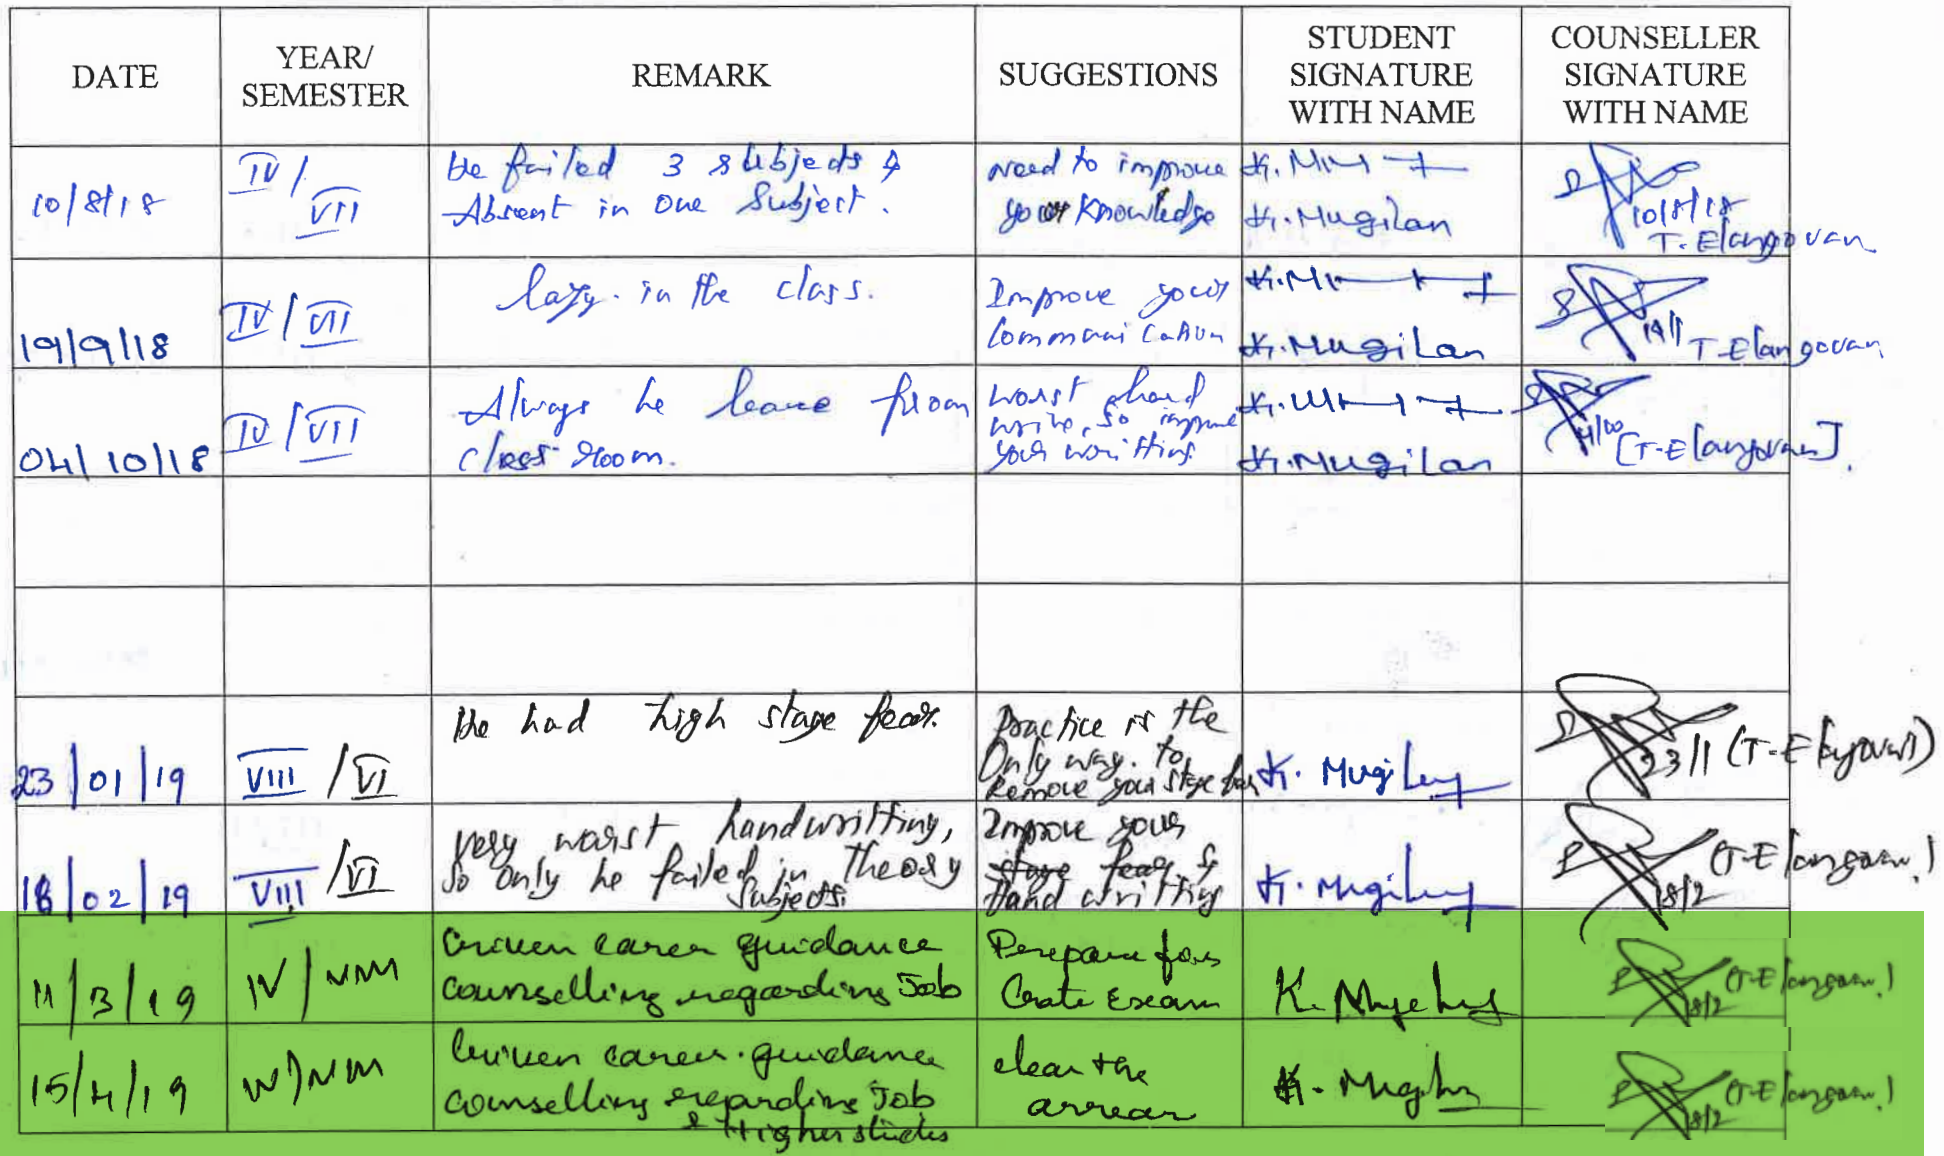 DATE
YEAR/
SEMESTER
REMARK
SUGGESTIONS
STUDENT
SIGNATURE
WITH NAME
COUNSELLER
SIGNATURE
WITH NAME
10/8/18
IV/
VII
He failed 3 subjects &
Absent in one Subject.
need to improve
your Knowledge
K. Mugilan
10/8/18
T. Elangovan
19/9/18
IV/VII
lazy. in the class.
Improve your
Communication
K. Mugilan
T-Elangovan
04/10/18
IV/VII
Always he leave from
class room.
worst hand
write, so improve
your writting
K. Mugilan
[T-Elangovan].
23/01/19
VIII/VI
He had high stage fear.
Practice is the
Only way. to
Remove your stage fear
K. Mugilan
23/1 (T-Elangovan)
18/02/19
VIII/VI
very worst handwritting,
so only he failed in Theory
Subjects.
Improve your
stage fear &
Hand writting
K. Mugilan
18/2
(T-Elangovan.)
11/3/19
IV/VIII
Given career guidance
counselling regarding Job
Prepare for
Gate Exam
K. Mugilan
18/2
(T-Elangovan.)
15/4/19
IV/VIII
Given career guidance
counselling regarding Job
& Higher studies
clear the
arrear
K. Mugilan
18/2
(T-Elangovan.)